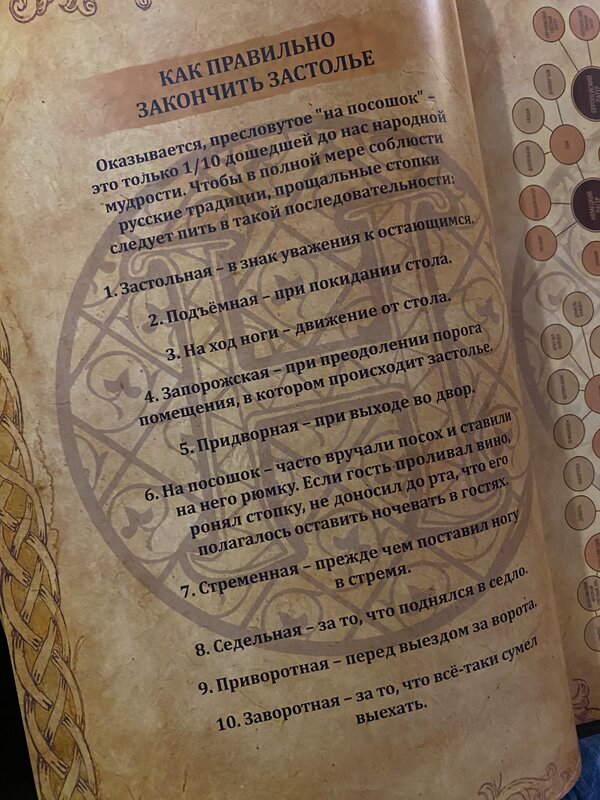 КАК ПРАВИЛЬНО
ЗАКОНЧИТЬ ЗАСТОЛЬЕ
Оказывается, пресловутое "на посошок" –
это только 1/10 дошедшей до нас народной
мудрости. Чтобы в полной мере соблюсти
русские традиции, прощальные стопки
следует пить в такой последовательности:
1. Застольная – в знак уважения к остающимся.
2. Подъёмная – при покидании стола.
3. На ход ноги – движение от стола.
4. Запорожская – при преодолении порога
помещения, в котором происходит застолье.
5. Придворная – при выходе во двор.
6. На посошок – часто вручали посох и ставили
на него рюмку. Если гость проливал вино,
ронял стопку, не доносил до рта, что его
полагалось оставить ночевать в гостях.
7. Стременная – прежде чем поставил ногу
в стремя.
8. Седельная – за то, что поднялся в седло.
9. Приворотная – перед выездом за ворота.
10. Заворотная – за то, что всё-таки сумел
выехать.